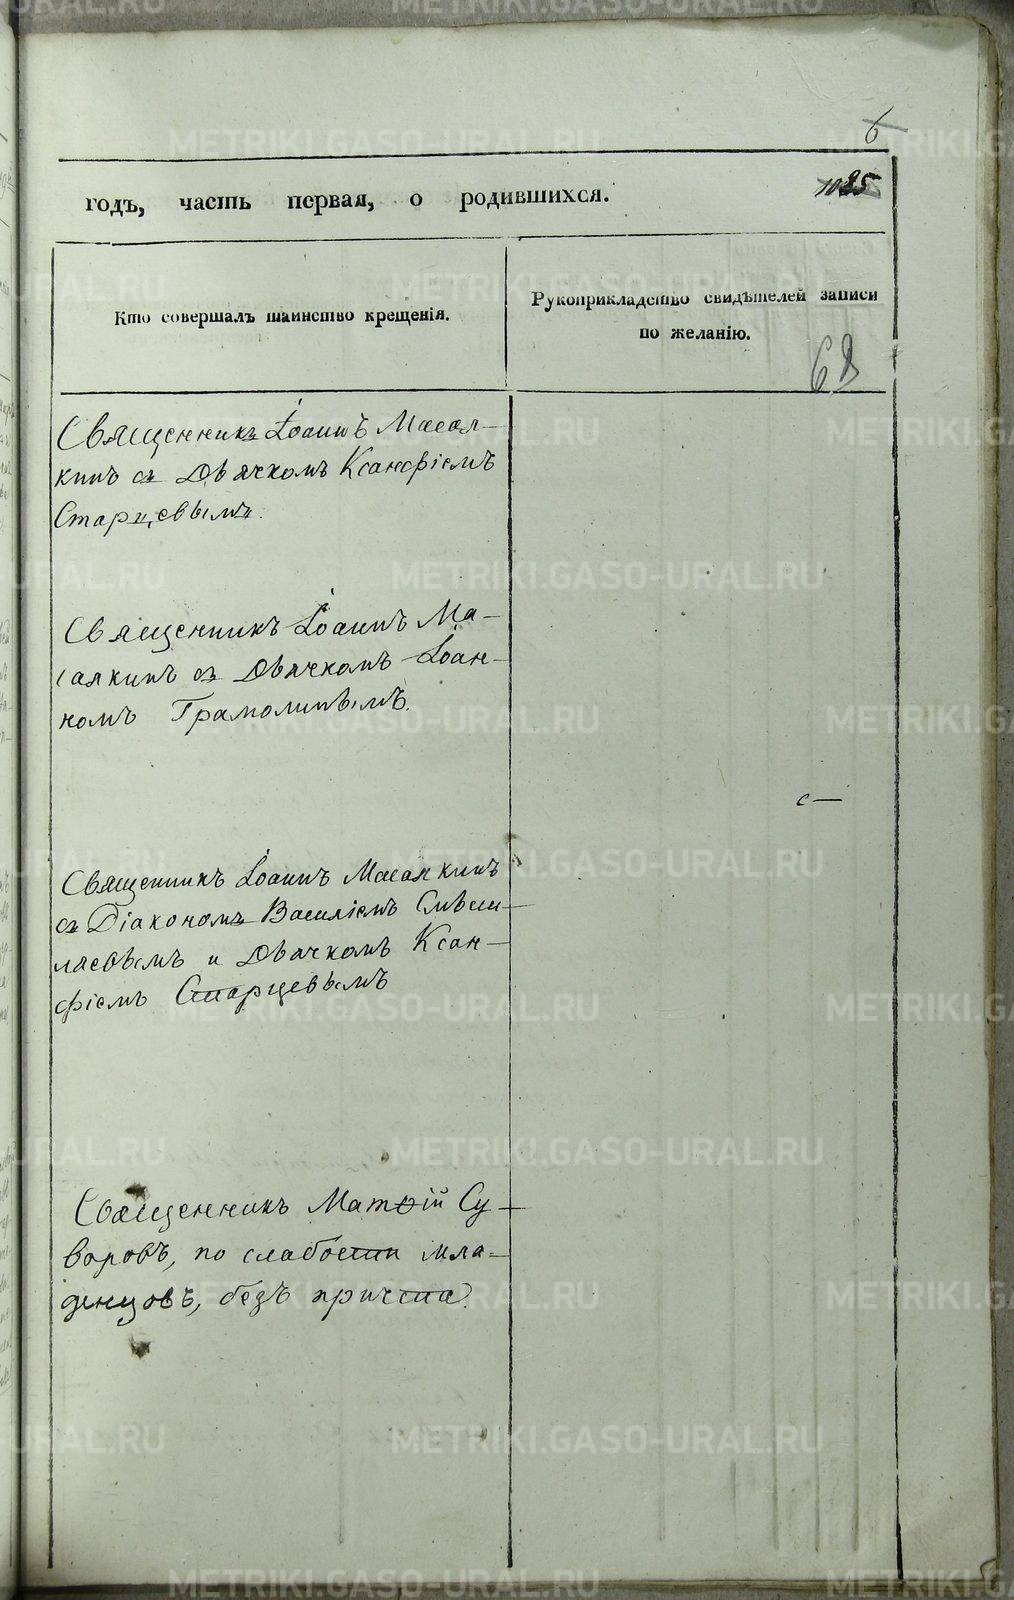 6
годъ, часть первая, о родившихся.
Кто совершалъ таинство крещенія.
Рукоприкладство свидѣтелей записи
по желанію.
Священникъ Іоаннъ Масал-
кинъ съ Дьячкомъ Ксанфіемъ
Старцевымъ.
Священникъ Іоаннъ Ма-
салкинъ съ Дьячкомъ Іоан-
номъ
Священникъ Іоаннъ Масалкинъ
съ Діакономъ Василіемъ
и Дьячкомъ Ксан-
фіемъ Старцевымъ
Священникъ Матѳій Су-
воровъ, по слабости мла-
денцовъ, безъ причта.
METRIKI.GASO-URAL.RU